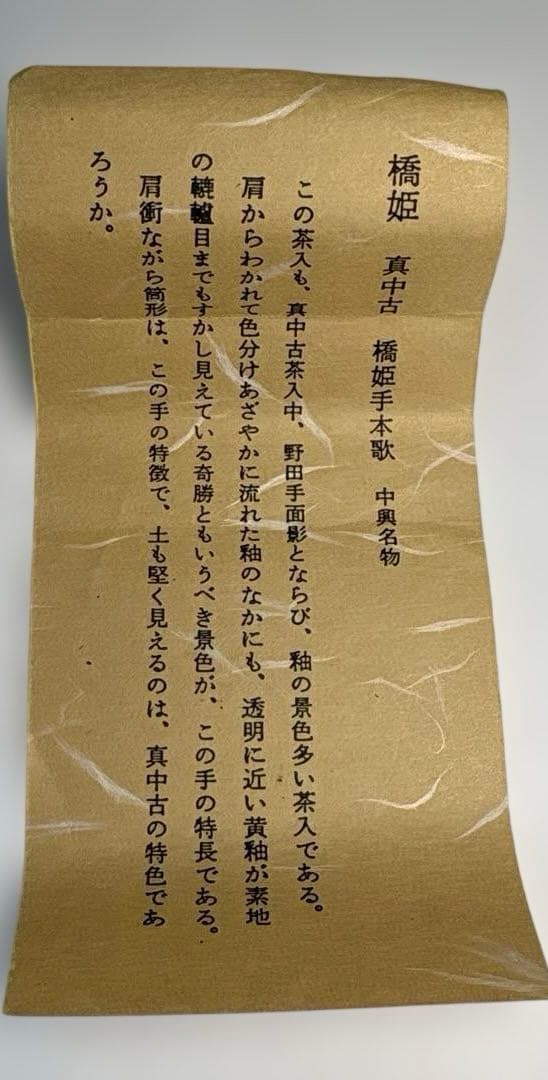 橋姫　真中古　橋姫手本歌　中興名物
この茶入も、真中古茶入中、野田手面影とならび、釉の景色多い茶入である。
肩からわかれて色分けあざやかに流れた釉のなかにも、透明に近い黄釉が素地
の轆轤目までもすかし見えている奇勝ともいうべき景色が、この手の特長である。
肩衝ながら筒形は、この手の特徴で、土も堅く見えるのは、真中古の特色であ
ろうか。